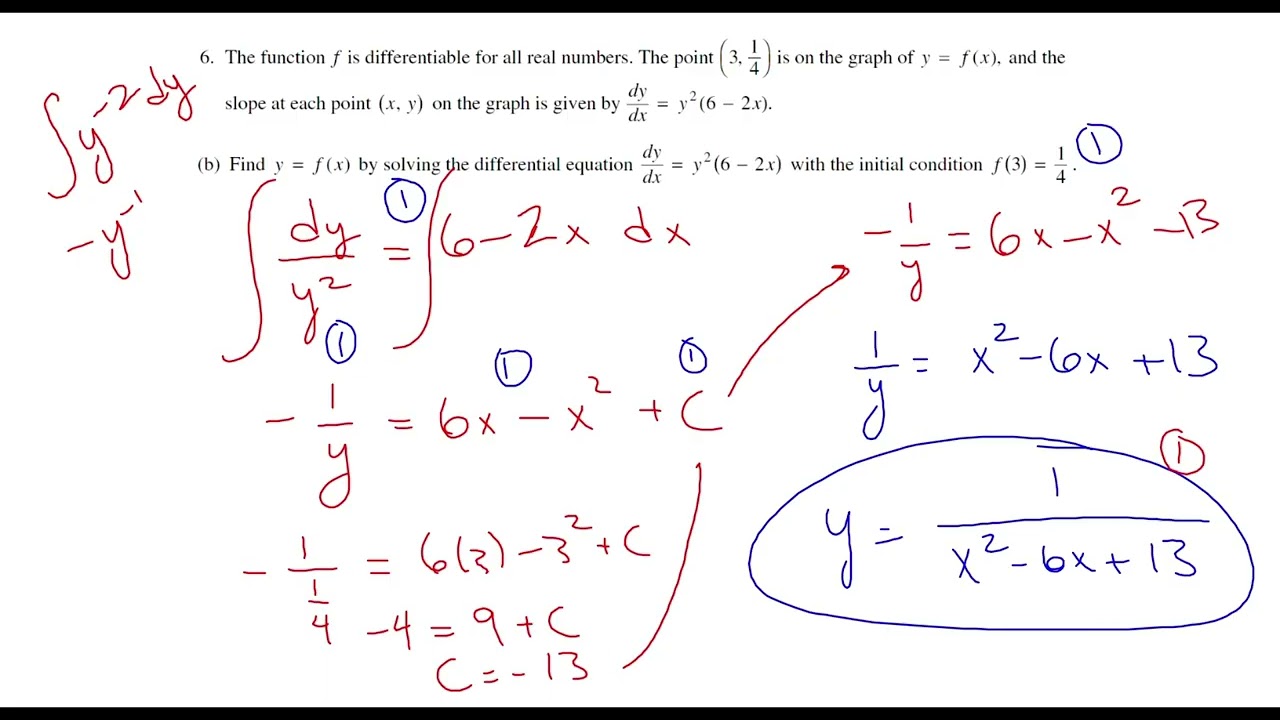 6. The function f is differentiable for all real numbers. The point (3, 1/4) is on the graph of y = f(x), and the
slope at each point (x, y) on the graph is given by dy/dx = y²(6 − 2x).
(b) Find y = f(x) by solving the differential equation dy/dx = y²(6 − 2x) with the initial condition f(3) = 1/4.
①
∫ y⁻² dy
−y⁻¹
∫ dy/y² = ∫ 6 − 2x dx
①
①
①
①
−1/y = 6x − x² + C
−1/(1/4) = 6(3) − 3² + C
−4 = 9 + C
C = −13
−1/y = 6x − x² − 13
1/y = x² − 6x + 13
①
y = 1/(x² − 6x + 13)